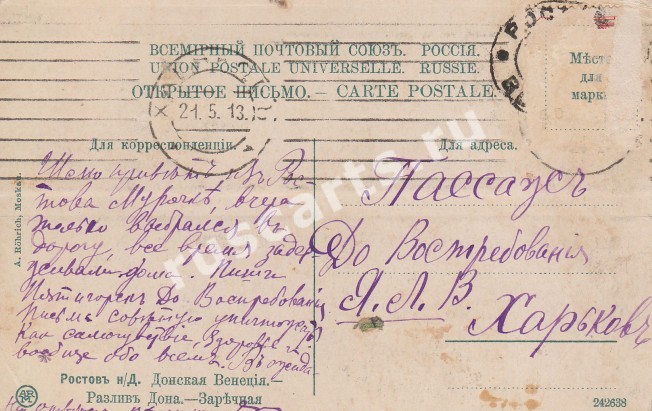 ВСЕМІРНЫЙ ПОЧТОВЫЙ СОЮЗЪ. РОССІЯ.
UNION POSTALE UNIVERSELLE. RUSSIE.
ОТКРЫТОЕ ПИСЬМО. — CARTE POSTALE.
Мѣсто
для
марки
РОСТ
21.5.13.
Для корреспонденціи.
Для адреса.
привѣтъ изъ Рос
това Мурочкѣ, вчера
только выбрался въ
дорогу, все время задер
живали дома. Пиши
Пятигорскъ До Востребованія
Письма совѣтую уничтожать
Как самочувствіе, здоровье и
вообще обо всемъ.
Пассажъ
До Востребованія
Я. Л. В.
Харьковъ
A. Röhrich, Moskau.
Ростовъ н/Д. Донская Венеція.—
Разливъ Дона.—Зарѣчная
242638
ruscarts.ru